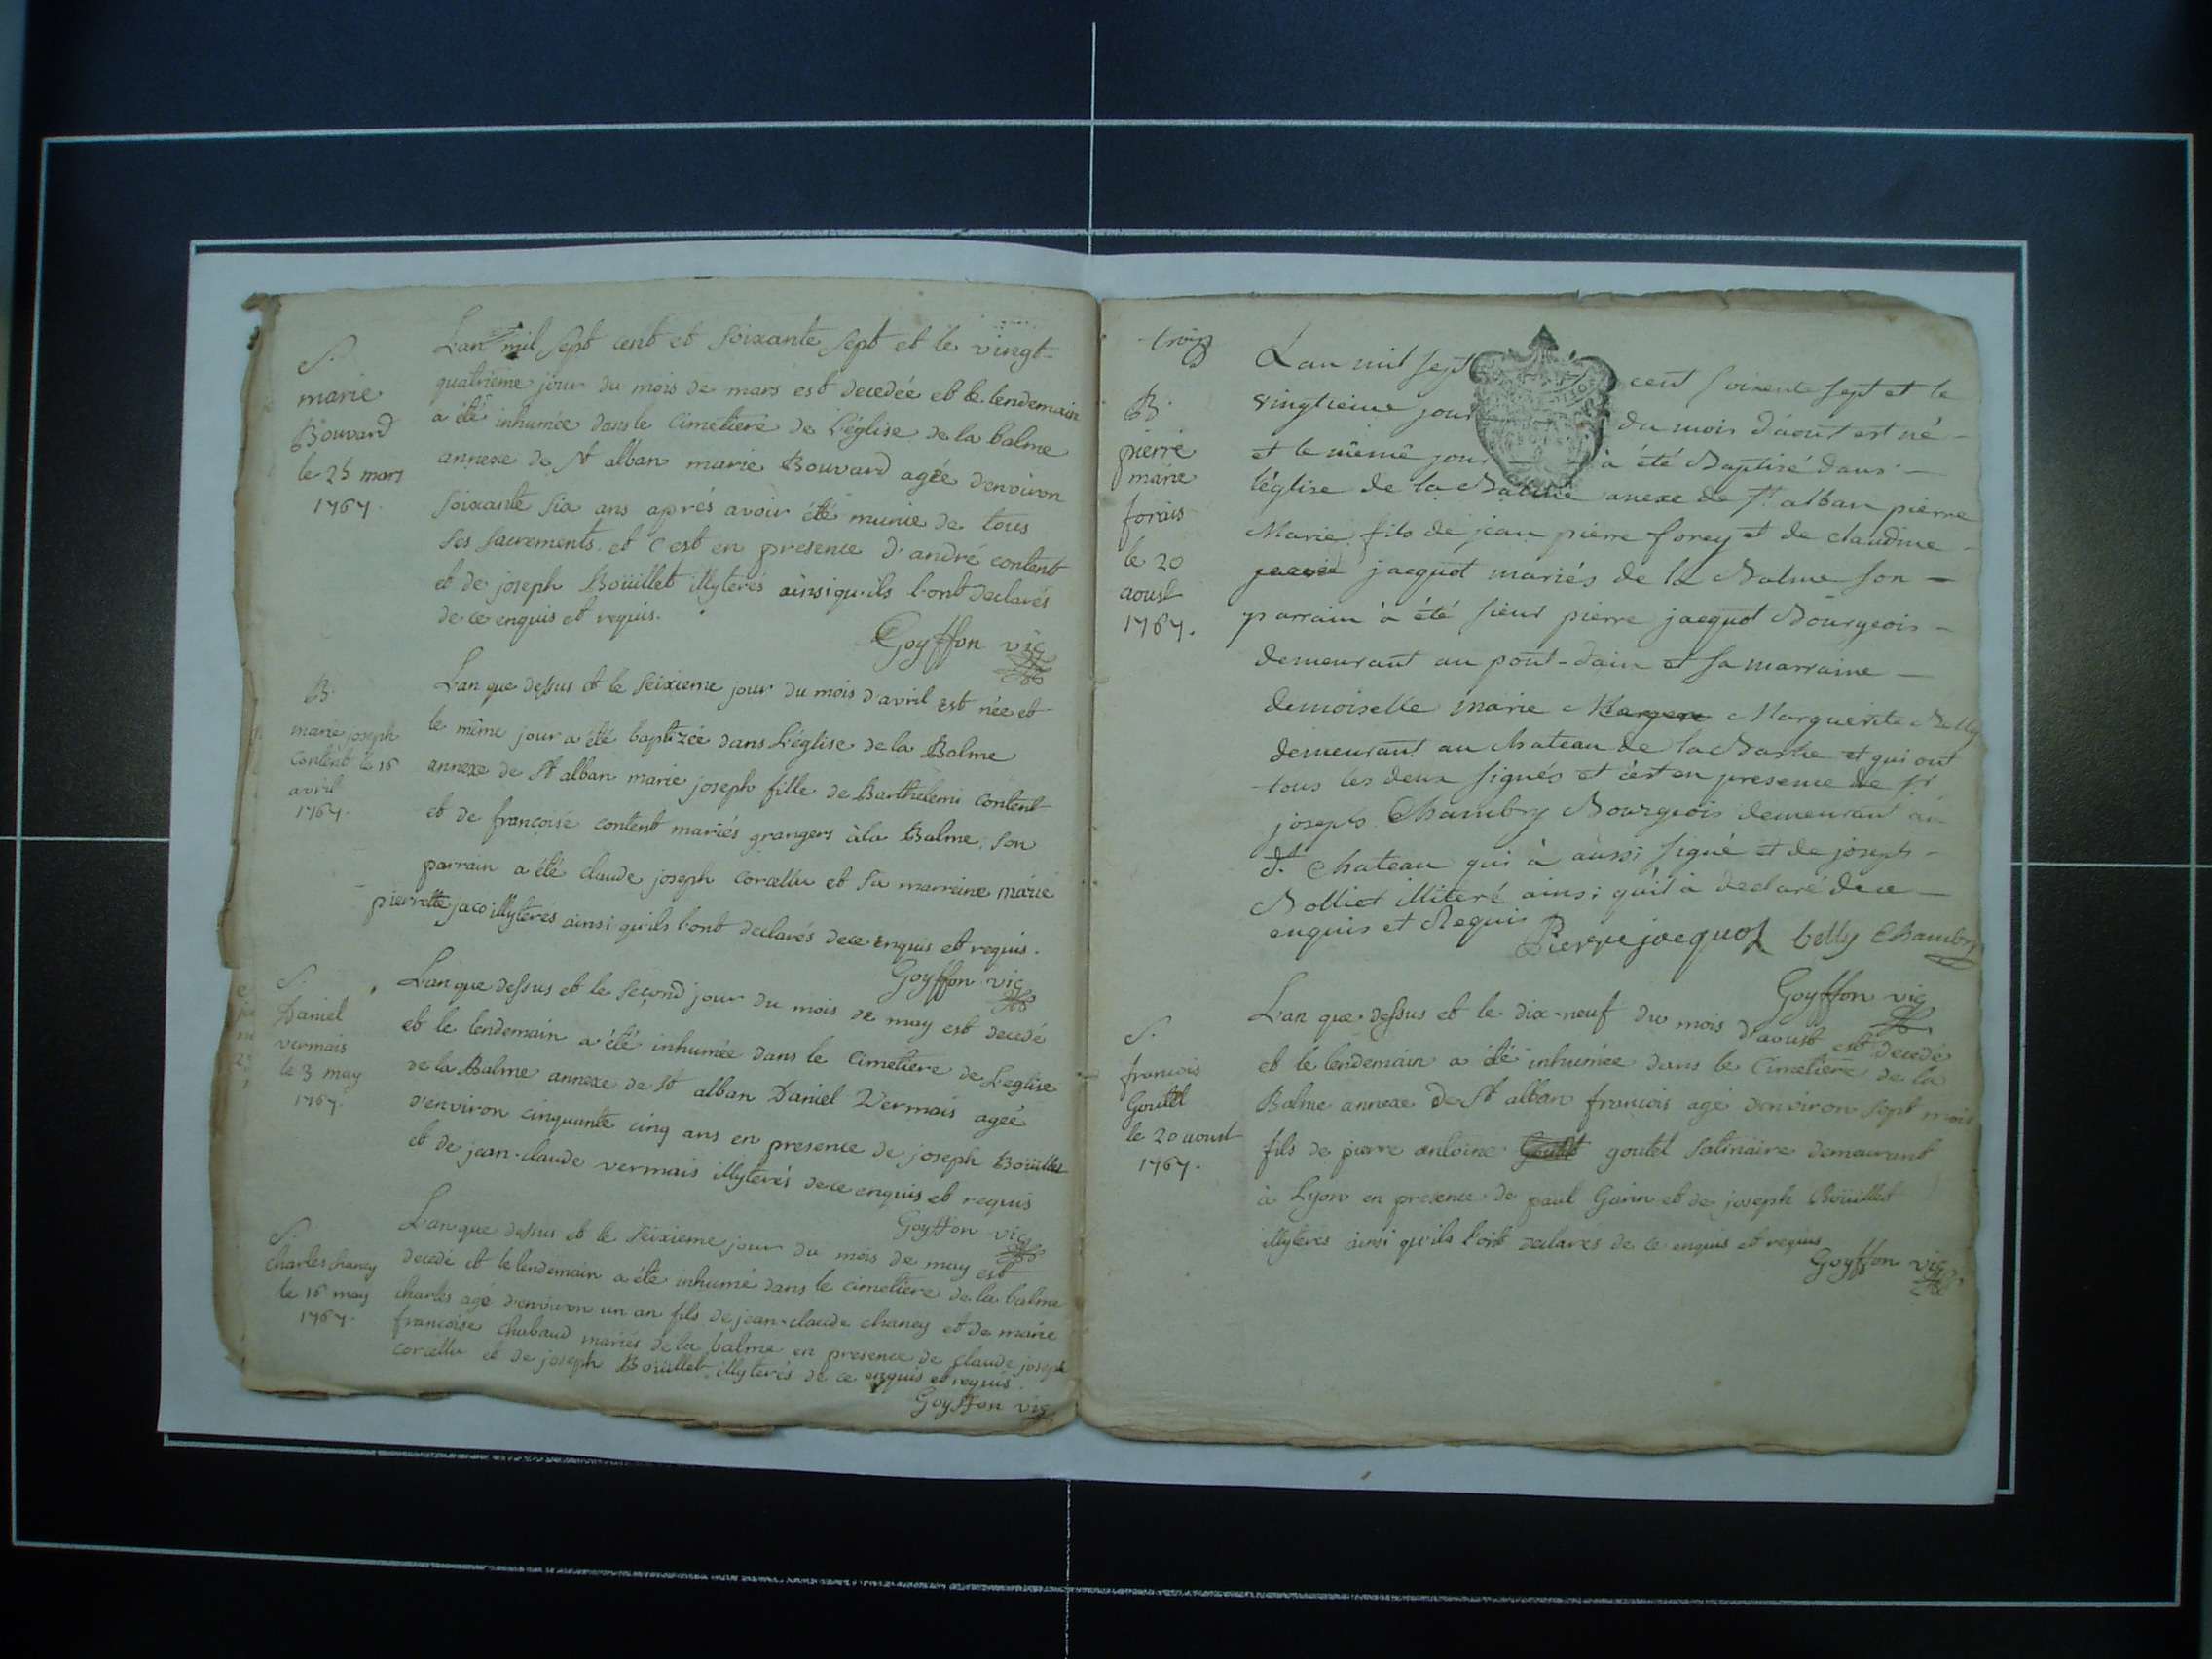 S.
marie
Bouvard
le 25 mars
1767.
L'an mil sept cent et soixante sept et le vingt-
quatrieme jour du mois de mars est decedée et le lendemain
a été inhumée dans le cimetiere de l'église de la balme
annexe de St alban marie Bouvard agée d'environ
soixante six ans aprés avoir été munie de tous
ses sacrements et c'est en presence d'andré content
et de joseph Boüillet illyterés ainsi qu'ils l'ont declarés
de ce enquis et requis.
Goyffon vic
B.
marie joseph
Content le 16
avril
1767.
L'an que dessus et le seixieme jour du mois d'avril est née et
le même jour a été baptizée dans l'église de la Balme
annexe de St alban marie joseph fille de Barthelemi content
et de francoise content mariés grangers à la Balme, son
parrain a été claude joseph corcellu et sa marreine marie
pierrette jaco illyterés ainsi qu'ils l'ont declarés de ce enquis et requis.
Goyffon vic
S.
Daniel
vermais
le 3 may
1767.
L'an que dessus et le second jour du mois de may est decedé
et le lendemain a été inhumée dans le cimetiere de l'eglise
de la Balme annexe de St alban Daniel Vermais ageé
d'environ cinquante cinq ans en presence de joseph Boüillet
et de jean-claude vermais illyterés de ce enquis et requis
Goyffon vic
S.
charles chaney
le 16 may
1767.
L'an que dessus et le seixieme jour du mois de may est
decedé et le lendemain a été inhumé dans le cimetiere de la balme
charles agé d'environ un an fils de jean-claude chaney et de marie
francoise chabaud mariés de la balme en presence de claude joseph
corcellu et de joseph Boüillet illyterés de ce enquis et requis.
Goyffon vic
trois
B.
pierre
marie
forais
le 20
aoust
1767.
L'an mil sept cent soixente sept et le
vingtieme jour du mois d'aout est né -
et le même jour à été Baptisé dans -
l'église de la Balme anexe de St alban pierre
Marie fils de jean pierre forey et de claudine -
jacquot mariés de la Balme son -
parrain à été sieur pierre jacquot Bourgeois -
demeurant au pont-d'ain et sa marraine -
demoiselle marie Marguerite Belly
demeurant au chateau de la Barre et qui ont
tous les deux signés et c'est en presence de Sr
joseph Chambry Bourgeois demeurant au
dt Chateau qui à aussi signé et de joseph -
Bolliet illiteré ainsi qu'il à declaré de ce -
enquis et Requis
Pierre jacquot belly Chambry
Goyffon vic
S.
francois
Goutel
le 20 aoust
1767.
L'an que dessus et le dix-neuf du mois d'aoust est decedé
et le lendemain a été inhumée dans le cimetiere de la
Balme annexe de St alban francois agé d'environ sept mois
fils de pierre antoine goutel satinaire demeurant
à Lyon en presence de paul Garin et de joseph Boüillet
illyterés ainsi qu'ils l'ont declarés de ce enquis et requis
Goyffon vic